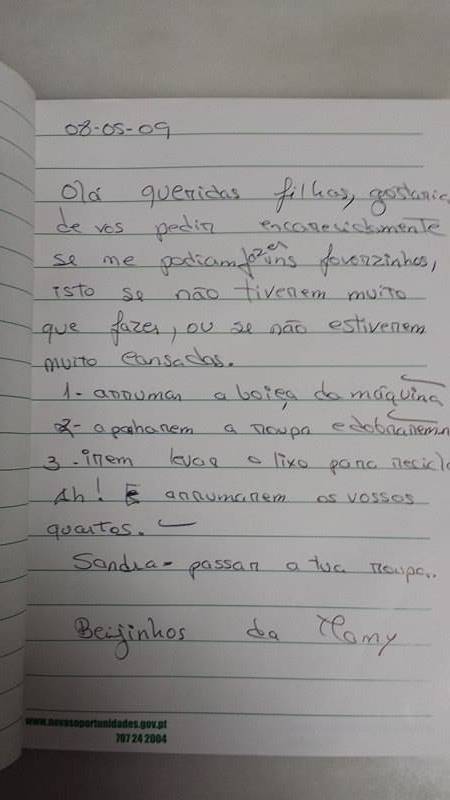 08-05-09
Olá queridas filhas, gostaria
de vos pedir encarecidamente
se me podiam fazer uns favorzinhos,
isto se não tiverem muito
que fazer, ou se não estiverem
muito cansadas.
1- arrumar a boiça da máquina
2- apanharem a roupa e dobrarem
3 - irem levar o lixo para recicla
Ah! E arrumarem os vossos
quartos.
Sandra - passar a tua roupa..
Beijinhos da Mamy
www.novasoportunidades.gov.pt
707 24 2004